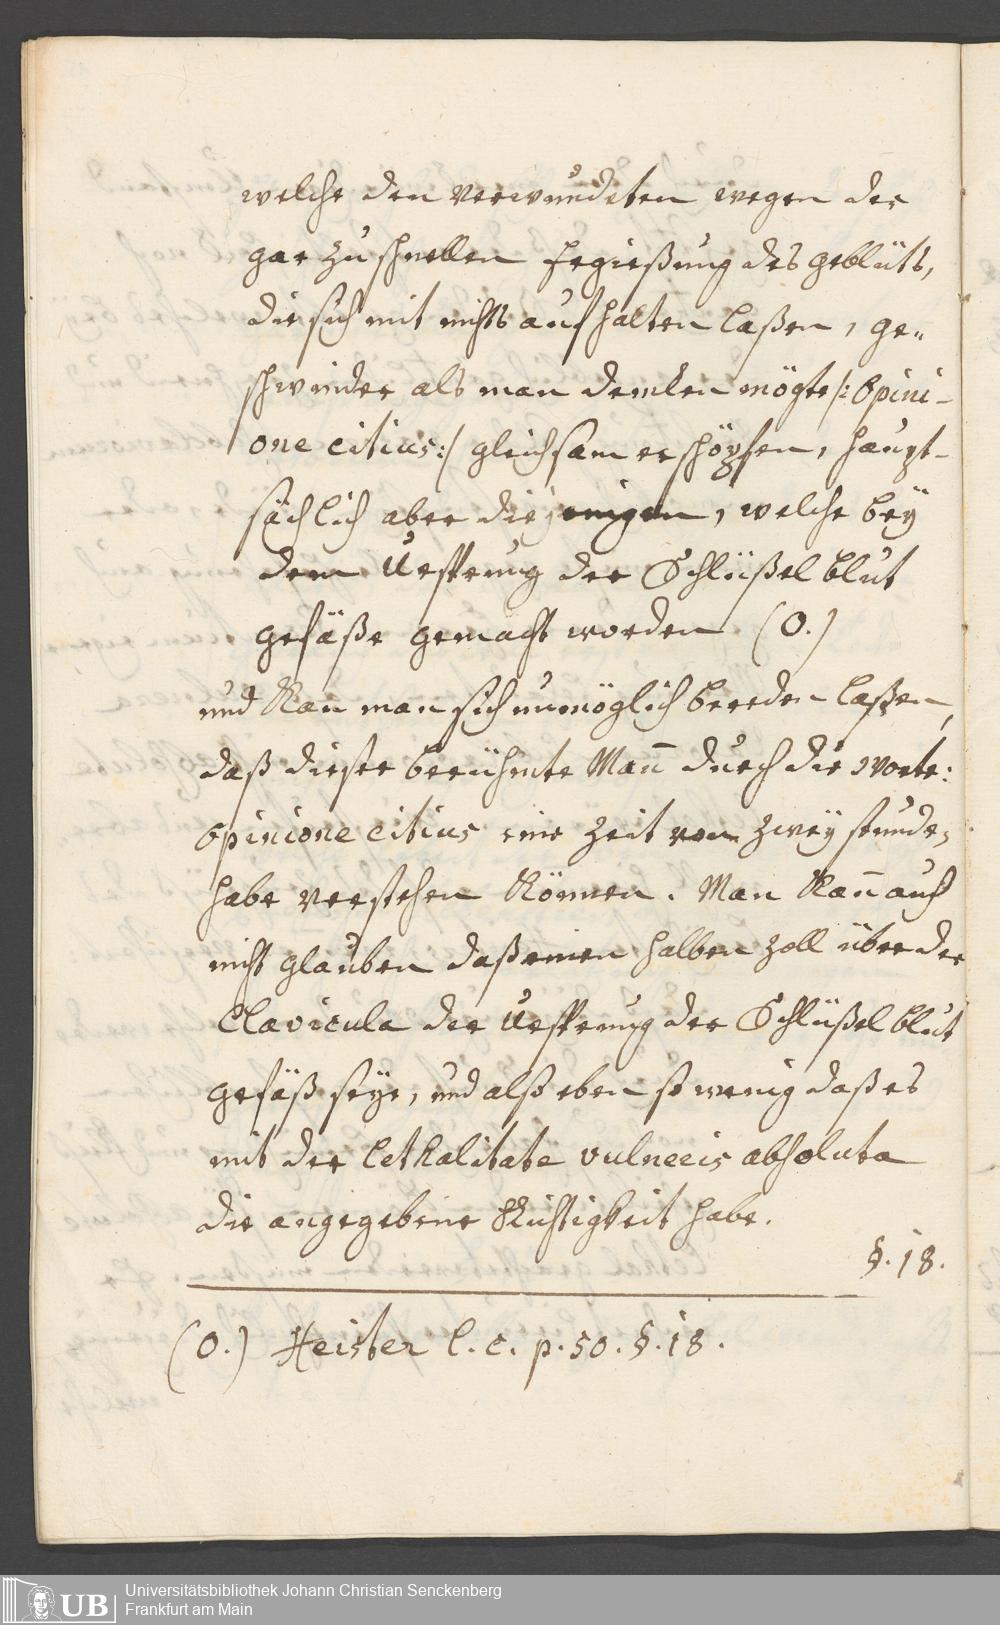 welche den verwundeten wegen der
gar zu schnellen Ergießung des geblüts,
die sich mit nichts aufhalten laßen, ge„
schwinder als man dencken mögte /: Opini-
one citius :/ gleichsam erschöpfen, haupt-
sächlich aber diejenigen, welche beÿ
dem Ursprung der Schlüßel blut
gefäße gemacht worden (O.)
und kan man sich unmöglich bereden laßen,
daß dieser berühmte Mañ durch die worte:
Opinione citius eine Zeit von zweÿ stunde,
habe verstehen können. Man kañ auch
nicht glauben daß einen halben Zoll über der
Clavicula der Ursprung der Schlüßel blut
gefäß seÿe, und alß eben so wenig daß es
mit der Lethalitate vulneris absoluta
die angegebene Richtigkeit habe.
§. 18.
(O.) Heister l. c. p. 50. §. 18.
UB
Universitätsbibliothek Johann Christian Senckenberg
Frankfurt am Main